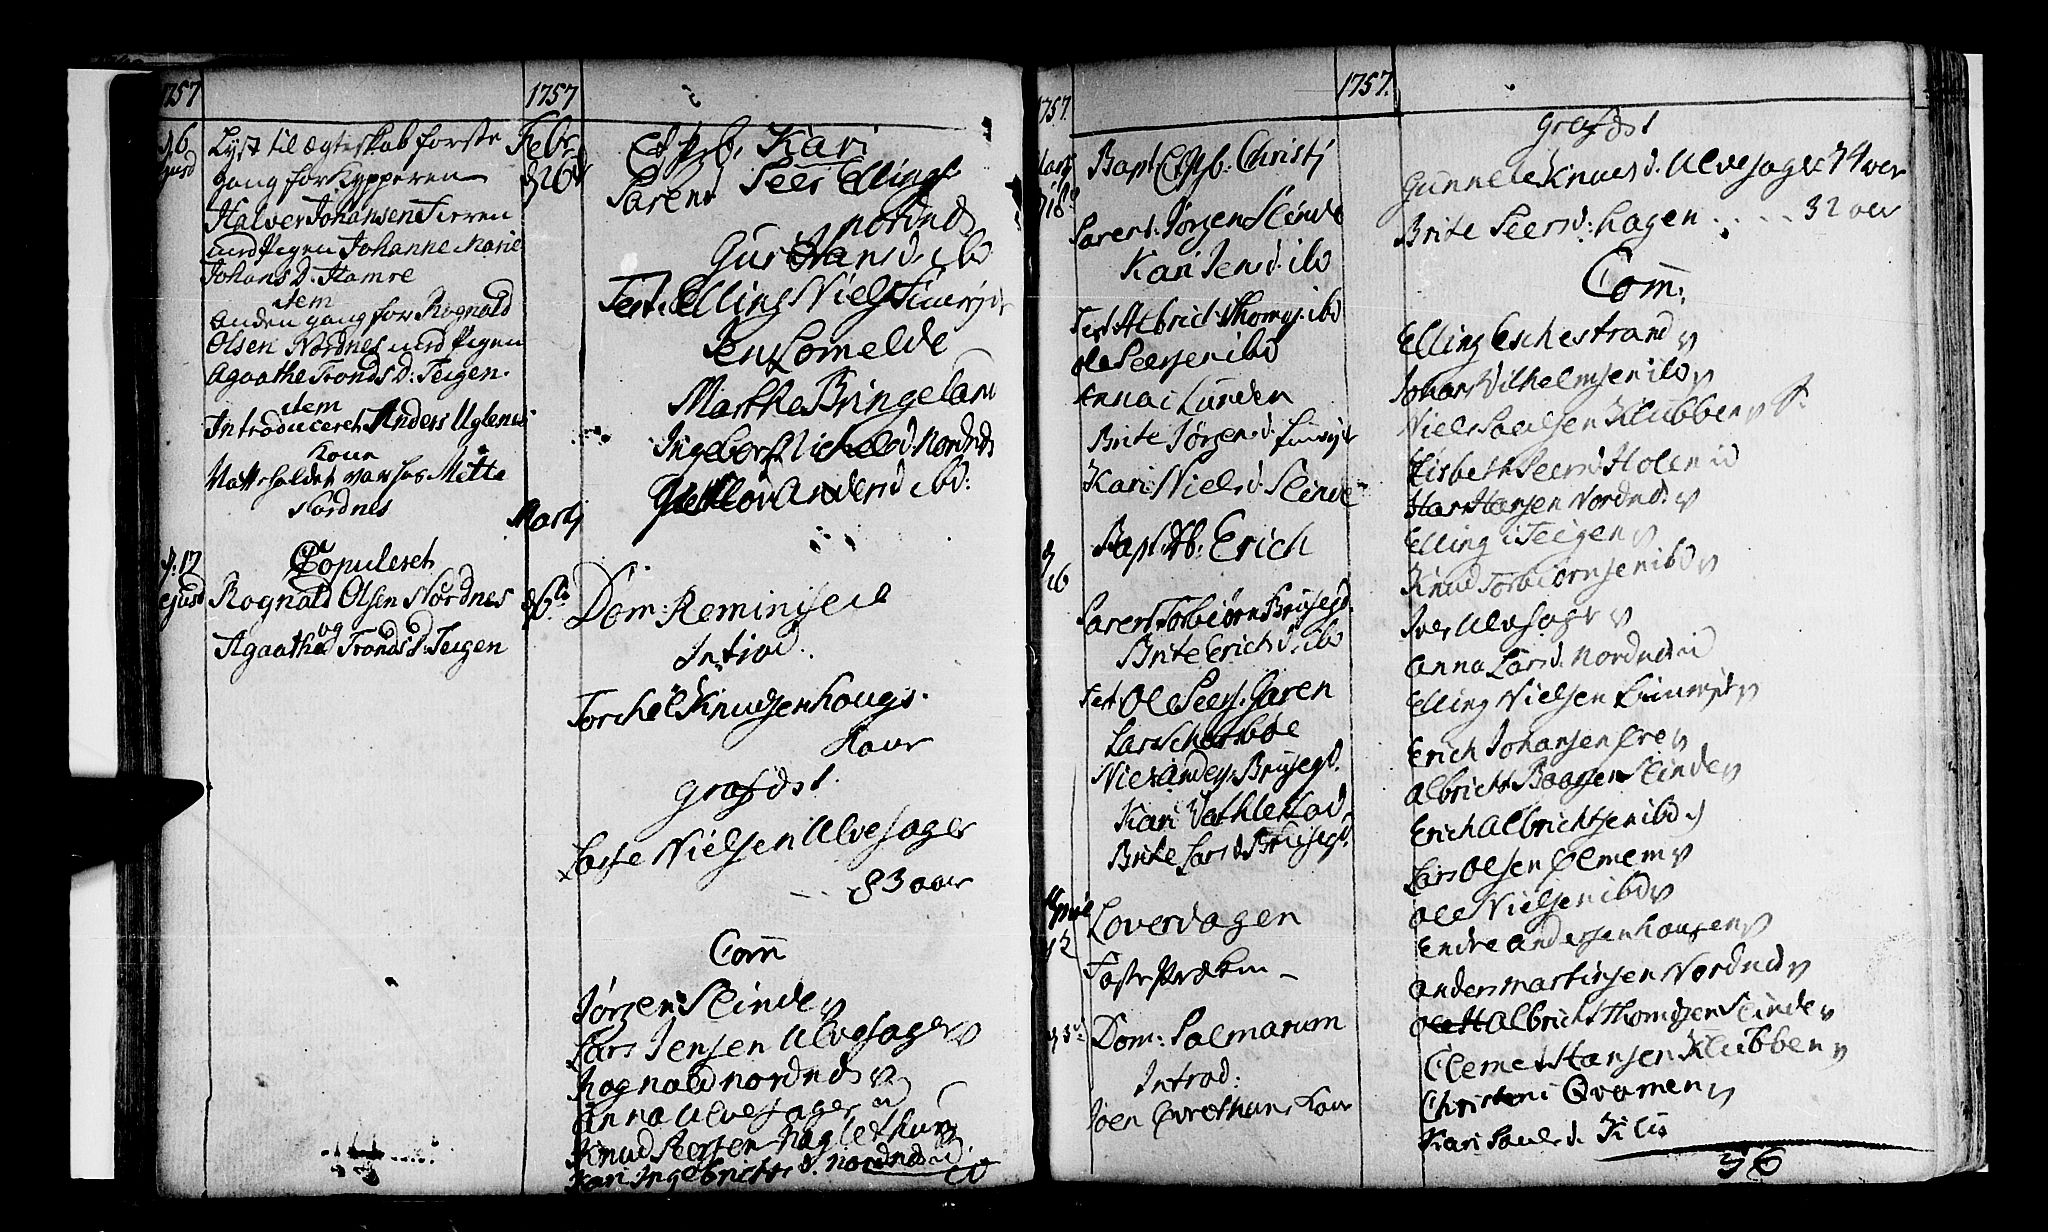 1757
d 6 ejusd
Lyst til ægteskab første
gang for Kypperen
Halver Johansen Fieren
med Pigen Johanne Marie
Johans D. Hamre
item
anden gang for Rognald
Olsen Nordnes med Pigen
Agaathe Tronds D: Teigen.
item
Introduceret Anders Uglenis
Kone
Natteholdet var hos Mette
Nordnes
d: 17 ejusd
Copuleret
Rognald Olsen Nordnes
og
Agaathe Tronds D: Teigen
1757
Febr
d 26de
Kari
Parent Peer Ellings
nordnds
Guri Hansd. ibd
Test. Elling Niels
Jens Lomelde
Marthe Bringeland
Ingebor Nichelsd. Nordnds
Andersd ibd:
Martj
d 6te
Dom: Reminiscere
Introd.
Torchel Knudsen Hougs.
Kone
Grafæst.
Lasse Nielsen Alvesager
83 aar
Com
Jørgen Slinde
Lars Jensen Alvesager
Rognald nordnds
Anna Alvesager
Knud Peersen
Kari Ingebrichts d. nordnds
1757
Martj
d 18
Bapt. Christj
Parent. Jørgen Slinde
Kari Jens d. ibd
Test. Albrict Thomes. ibd
Ole Peersen ibd
Anna i Lunden
Brite Jørgensd.
Kari Niels d Slinde
d 26
Bapt. Erich
Parent. Torbiørn Brusegd.
Brite Erichd. ibd
Test Ole Peers. Garen
Lars
Niels Anders. Brusegd.
Kari
Brite Lars d Brusegd.
April
d 2
Løverdagen
Faste Præken
d 3de
Dom: Palmarum
Introd:
Joen Kone
1757.
Grafæst
Gunnele Knuds d. Alvesager 74 aar
Brite Peersd: Hagen .... 32 aar
Com:
Elling Eschestrand
Johan Vilhelmsen ibd
Niels Poulsen Klubben
Lisbeth Peersd Holen
Hans Hansen Nordnds
Elling i Teigen
Knud Torbiørnsen ibd
Iver Alvsager
Anna Larsd. Nordnds
Elling Nielsen
Erich Johansen
Albricht Baarsen Slinde
Erich Albrichtsen ibd
Lars Olsen
Ole Nielsen ibd
Endre Andersen Hougen
Anders Martinsen Nordnds
Albricht Thomesen Slinde
Clemet Hansen Klubben
Christen i Qvamen
Kari Pouls d.